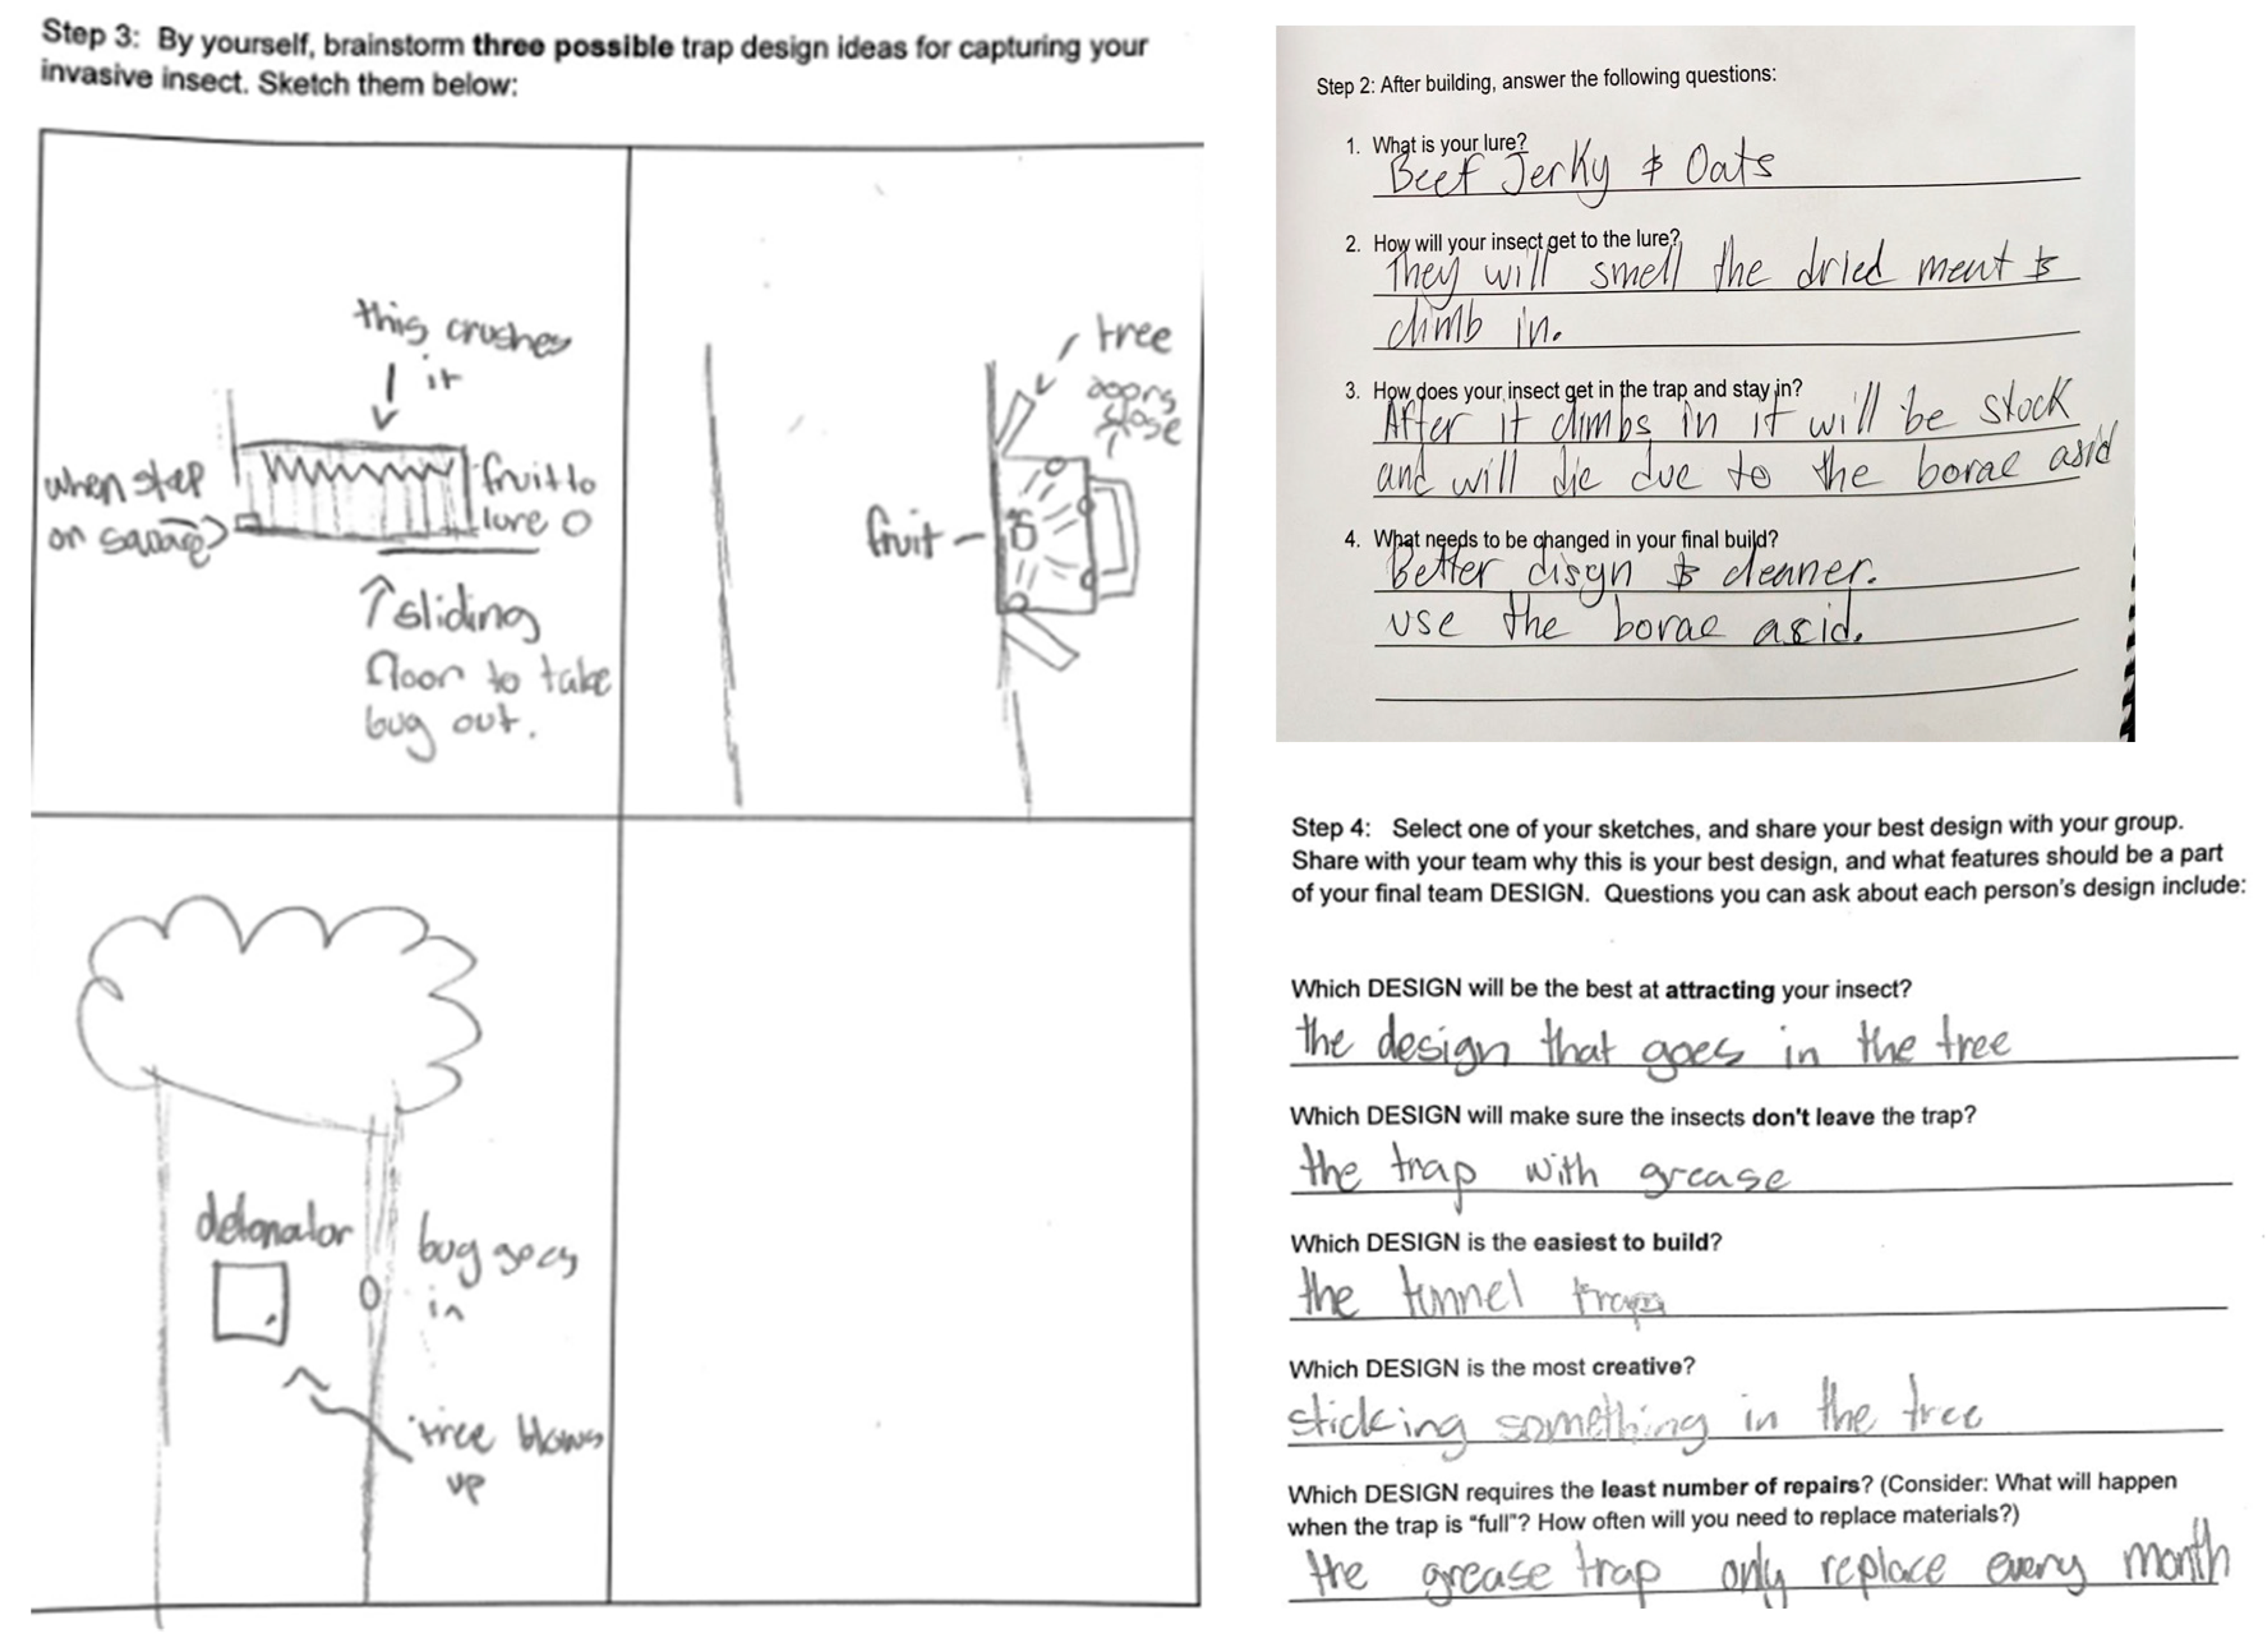 Step 3: By yourself, brainstorm three possible trap design ideas for capturing your
invasive insect. Sketch them below:
this crushes
it
when step
on square
fruit to
lure
sliding
floor to take
bug out.
tree
doors
close
fruit
detonator
bug goes
in
tree blows
up
Step 2: After building, answer the following questions:
1. What is your lure?
Beef Jerky & Oats
2. How will your insect get to the lure?
They will smell the dried meat &
climb in.
3. How does your insect get in the trap and stay in?
After it climbs in it will be stock
and will die due to the borac asid
4. What needs to be changed in your final build?
Better disgn & cleaner.
use the borac asid.
Step 4: Select one of your sketches, and share your best design with your group.
Share with your team why this is your best design, and what features should be a part
of your final team DESIGN. Questions you can ask about each person's design include:
Which DESIGN will be the best at attracting your insect?
the design that goes in the tree
Which DESIGN will make sure the insects don't leave the trap?
the trap with grease
Which DESIGN is the easiest to build?
the tunnel trap
Which DESIGN is the most creative?
sticking something in the tree
Which DESIGN requires the least number of repairs? (Consider: What will happen
when the trap is "full"? How often will you need to replace materials?)
the grease trap only replace every month